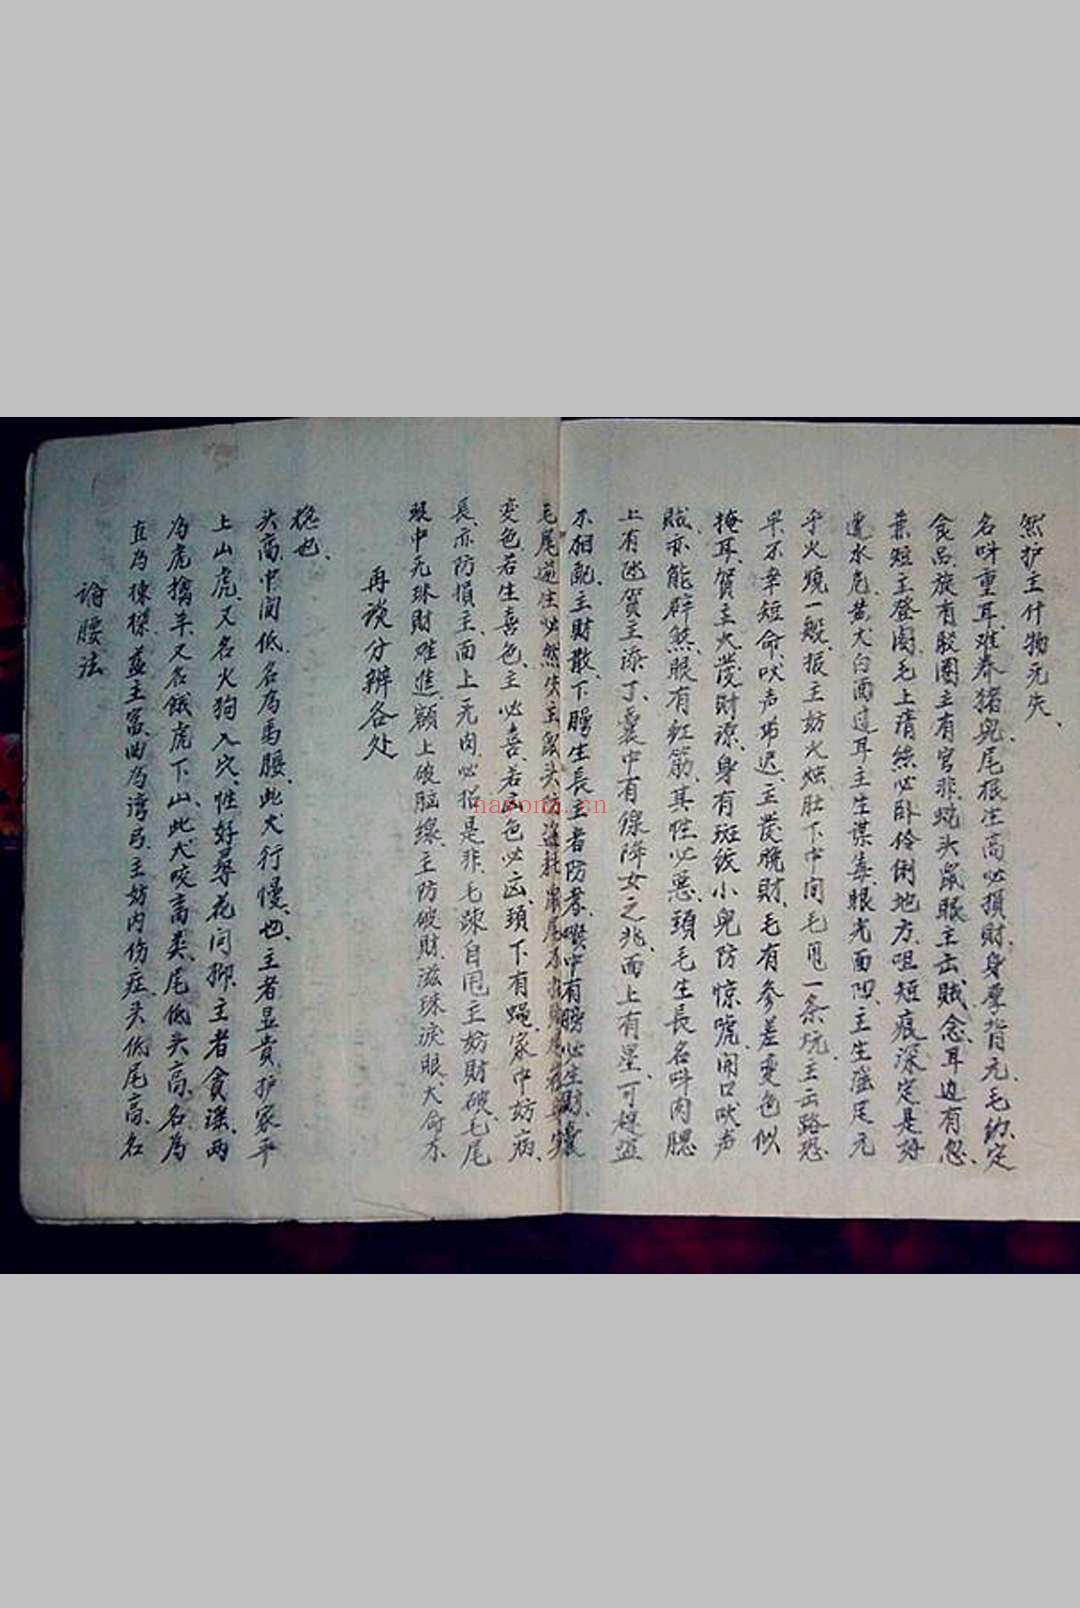 論腰法
直為棟樑益主富、曲為湾弓、主妨内伤症、头低尾高、名
為虎擒羊、又名餓虎下山、此犬咬高类、尾低头高、名為
上山虎、又名火狗入穴、性好尋花问柳、主者貪谋、两
头高、中间低、名為馬腰、此犬行慢也、主者显贵、护家平
稳也、
再谈分辨各处
眼中无珠財难進、額上破脑缐、主防破財、滋珠淚眼、犬命不
長、亦防損主、面上无肉必招是非、毛疎自甩主妨財破、毛尾
变色若生喜色、主必喜、若凶色必凶、頚下有蝇、家中妨病、
毛尾逆生必然失主、鼠头防盗耗、鼠尾
不相配、主財散、下膀生長主者防孝、喉中有膀必生財、囊
上有迷贺主添丁、囊中有缐降女之兆、面上有墨、可 盗
賊、亦能辟煞、眼有红筋、其性必惡、頚毛生長名呌肉腮
掩耳、贺主大发財源、身有斑紋小兒防惊唬、闹口吠声
早、不幸短命、吠声 迟、主发晚財、毛有参差变色似
乎火燒一般、报主妨火烛、肚下中间毛甩一条坑、主云路恐
遭水危、黄犬白面过耳主生谋毒、眼光面凹、主生強足无
兼短主登阁、毛上清絲必卧伶俐地方、咀短痕深定是好
食品、族有股圈主有官非、蛇头鼠眼主云賊念、耳边有忽、
名呌重耳、难养猪兒、尾根生高必損財、身厚背元、毛幼、定
然护主什物无失、
navona.cn